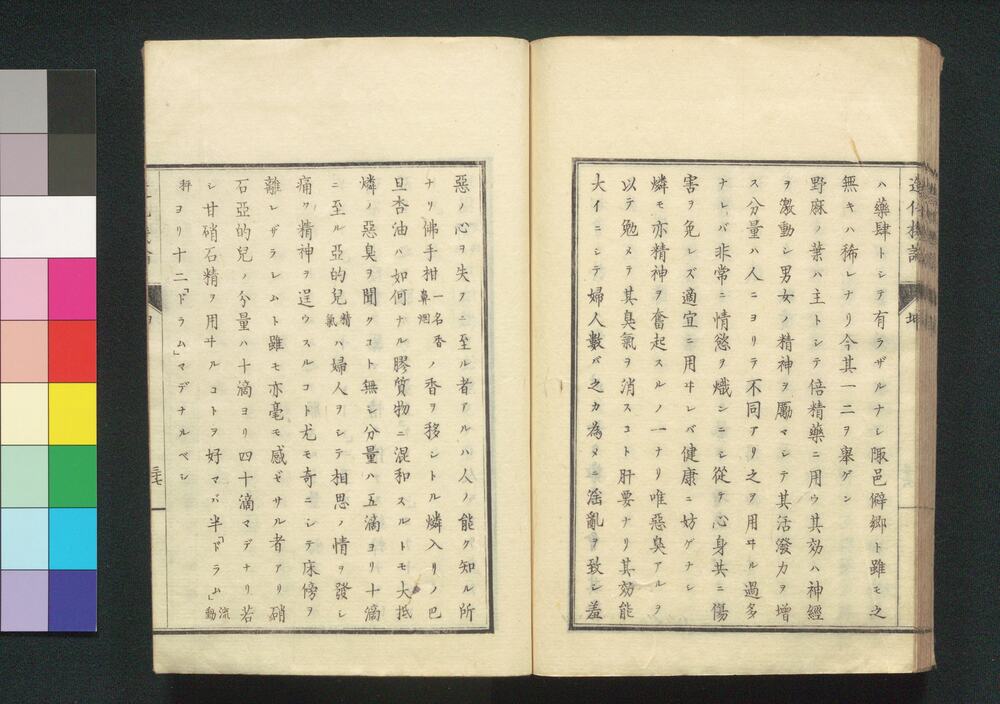 ハ藥肆トシテ有ラザルナシ陬邑僻郷ト雖モ之
無キハ稀レナリ今其一二ヲ擧ゲン
野麻ノ葉ハ主トシテ倍精藥ニ用ウ其効ハ神經
ヲ激動シ男女ノ精神ヲ勵マシテ其活潑力ヲ增
ス分量ハ人ニヨリテ不同アリ之ヲ用ヰル過多
ナレバ非常ニ情慾ヲ熾ンニシ從テ心身共ニ傷
害ヲ免レズ適宜ニ用ヰレバ健康ニ妨ゲナシ
燐モ亦精神ヲ奮起スルノ一ナリ唯惡臭アルヲ
以テ勉メテ其臭氣ヲ消スコト肝要ナリ其効能
大イニシテ婦人數バ之カ為メニ淫亂ヲ致シ羞
惡ノ心ヲ失フニ至ル者アルハ人ノ能ク知ル所
ナリ佛手柑一名香鼻烟ノ香ヲ移シトル燐入リノ巴
旦杏油ハ如何ナル膠質物ニ混和スルトモ大抵
燐ノ惡臭ヲ聞クコト無シ分量ハ五滴ヨリ十滴
ニ至ル亞的兒精氣ハ婦人ヲシテ相思ノ情ヲ發シ
痛ク精神ヲ逞ウスルコト尤モ奇ニシテ床傍ヲ
離レザラレムト雖モ亦毫モ感ゼサル者アリ硝
石亞的兒ノ分量ハ十滴ヨリ四十滴マデナリ若
シ甘硝石精ヲ用ヰルコトヲ好マバ半「ドラム」流動
秤ヨリ十二「ドラム」マデナルベシ
三十七